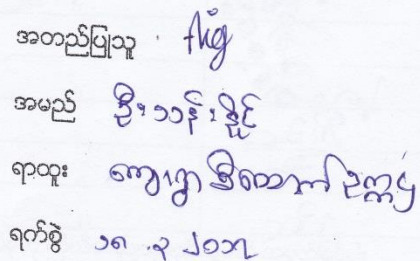 အတည်ပြုသူ
အမည် ဦးသန်းနိုင်
ရာထူး ကျေးရွာအိတောက်ဥက္ကဌ
ရက်စွဲ ၁၈.၃.၂၀၁၇